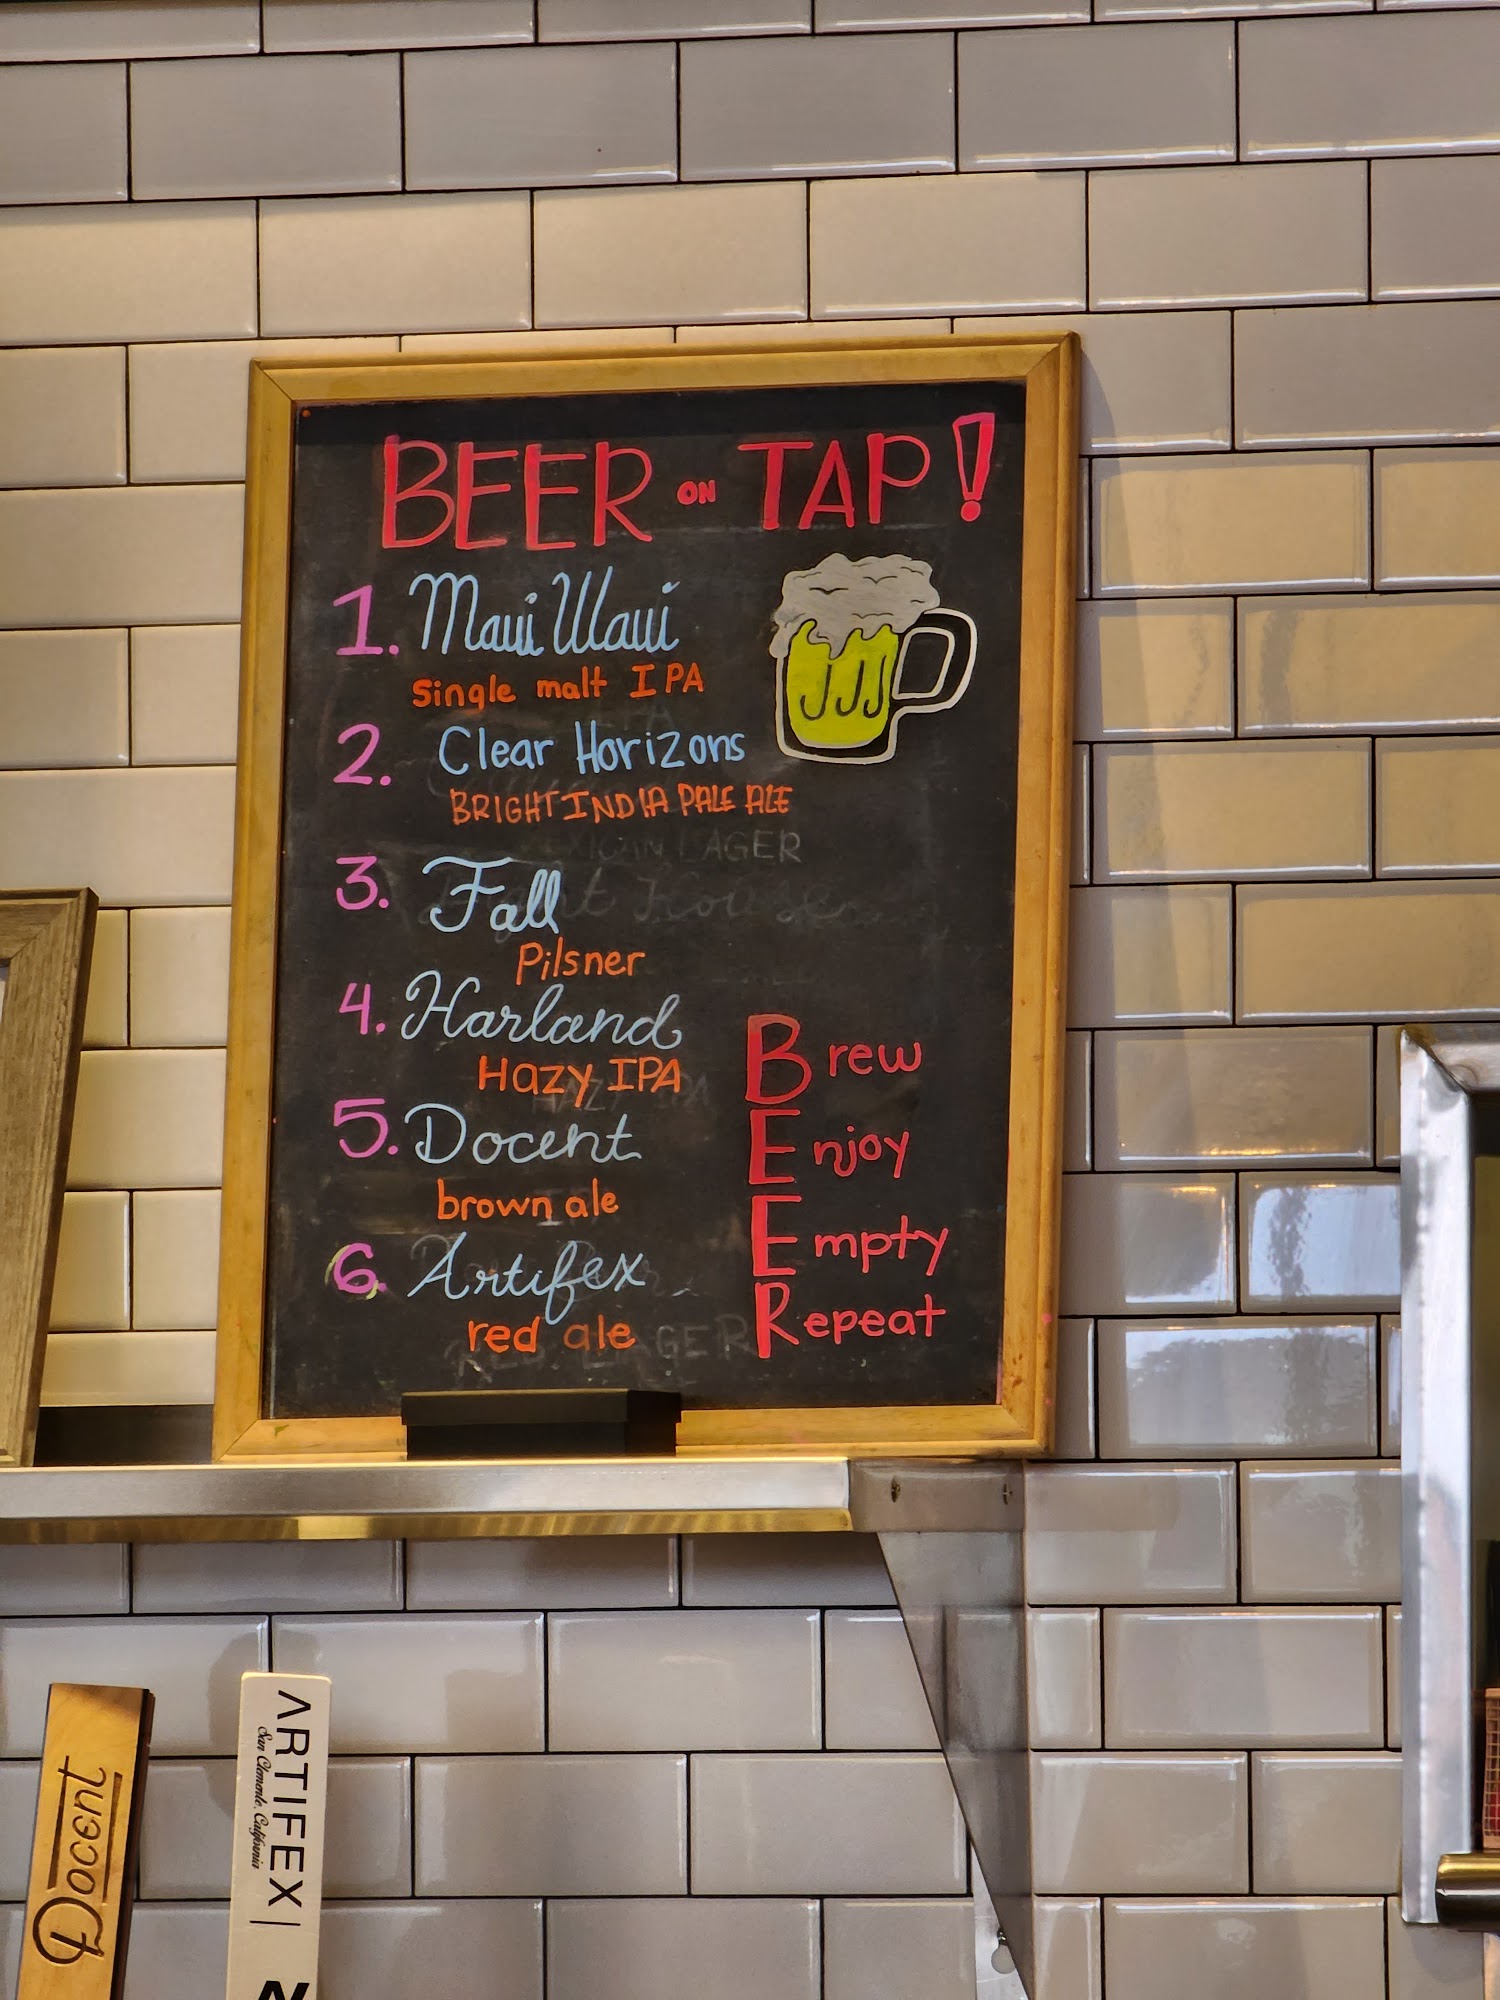 BEER ON TAP!
1. Maui Waui
Single malt IPA
2. Clear Horizons
BRIGHT INDIA PALE ALE
3. Fall
Pilsner
4. Harland
Hazy IPA
5. Docent
brown ale
6. Artifex
red ale
Brew
Enjoy
Empty
Repeat
EXICAN LAGER
HAZY IPA
RED LAGER
Docent
ARTIFEX
San Clemente, California